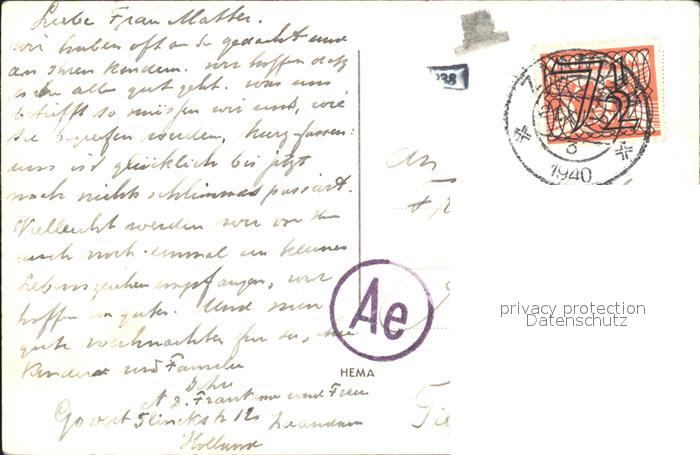 Liebe Frau Matter.
wir haben oft an Sie gedacht und
an Ihren Kindern. wir hoffen datz
es Ihnen alles gut geht. was uns
betrifft so müssen wir uns, wie
Sie begreifen werden, kurz fassen:
uns ist glücklich bis jetzt
noch nichts schlimmes passiert.
Vielleicht werden wir von Ihnen
auch noch einmal ein kleines
Lebenszeichen empfangen, wir
hoffen ein gutes. Und nun
gute weihnachten für Sie, Ihre
Kinder und Familie
Ihre
A. D. und Frau
Govert Flinckstr 120 Zaandam
Holland
238
7½
1940
An
Ae
HEMA
privacy protection
Datenschutz